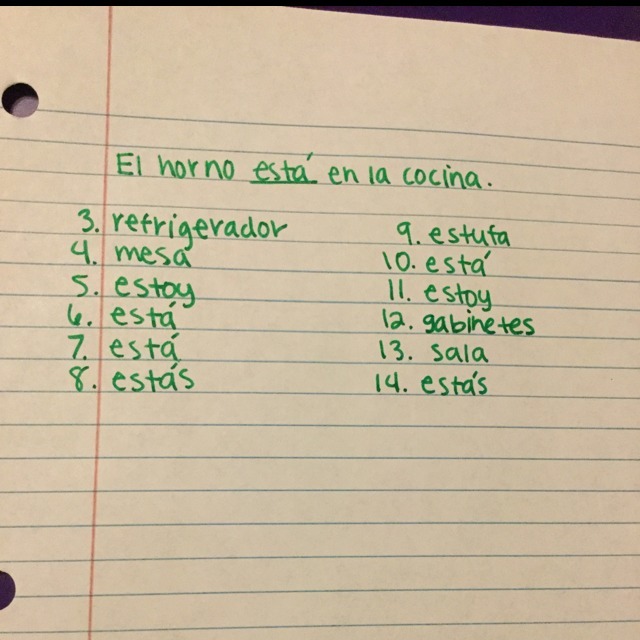 El horno está en la cocina.
3. refrigerador
4. mesa
5. estoy
6. está
7. está
8. estás
9. estufa
10. está
11. estoy
12. gabinetes
13. sala
14. estás